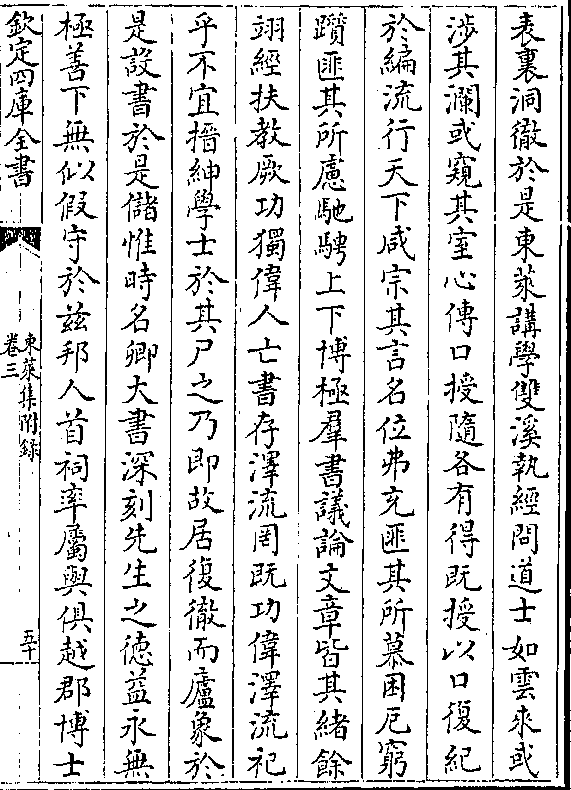 表裏洞徹於是東萊講學雙溪執經問道士如雲來或
涉其瀾或窺其室心傳口授隨各有得既授以口復紀
於編流行天下咸宗其言名位弗充匪其所慕困厄窮
躓匪其所慮馳騁上下博極羣書議論文章皆其緒餘
翊經扶教厥功獨偉人亡書存澤流罔既功偉澤流祀
乎不宜搢紳學士於其尸之乃即故居復徹而廬象於
是設書於是儲惟時名卿大書深刻先生之德益永無
極善下無似假守於兹邦人首祠率屬與俱越郡博士
欽定四庫全書
東萊集附録
卷三
五十